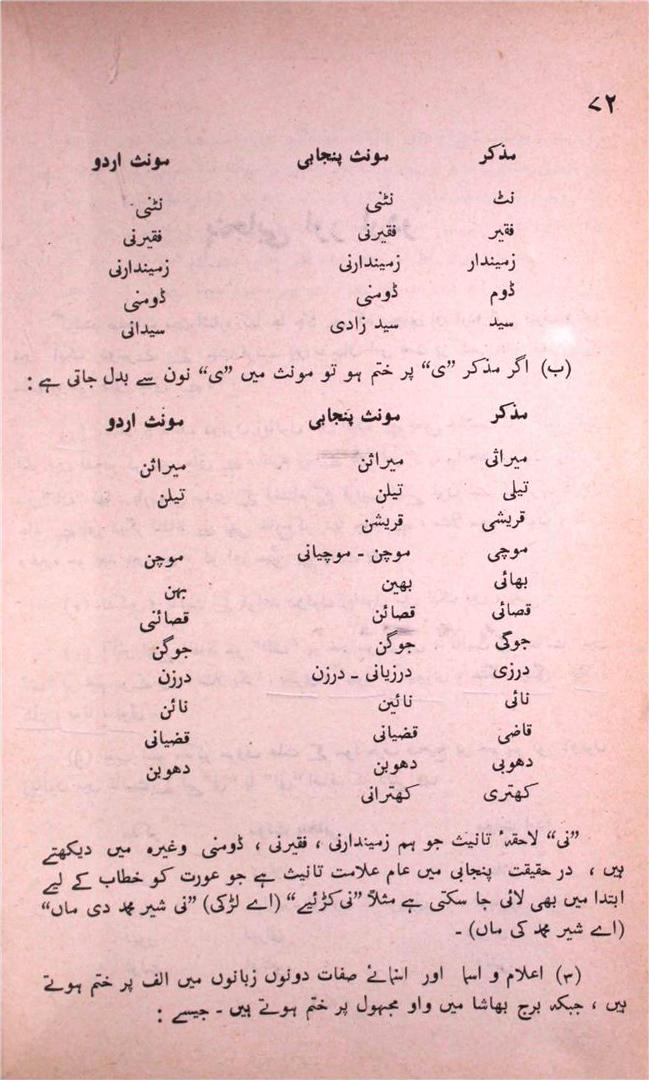 ۷۲
مذکر مونث پنجابی مونث اردو
نٹ نٹنی نٹنی
فقیر فقیرنی فقیرنی
زمیندار زمیندارنی زمیندارنی
ڈوم ڈومنی ڈومنی
سید سید زادی سیدانی
(ب) اگر مذکر ”ی“ پر ختم ہو تو مونث میں ”ی“ نون سے بدل جاتی ہے :
مذکر مونث پنجابی مونث اردو
میراثی میراثن میراثن
تیلی تیلن تیلن
قریشی قریشن
موچی موچن - موچیانی موچن
بھائی بھین بہن
قصائی قصائن قصائنی
جوگی جوگن جوگن
درزی درزیانی - درزن درزن
نائی نائین نائن
قاضی قضیانی قضیانی
دھوبی دھوبن دھوبن
کھتری کھترانی
”نی“ لاحقہٴ تانیث جو ہم زمیندارنی ، فقیرنی ، ڈومنی وغیرہ میں دیکھتے
ہیں ، در حقیقت پنجابی میں عام علامت تانیث ہے جو عورت کو خطاب کے لیے
ابتدا میں بھی لائی جا سکتی ہے مثلاً ”نی کڑئیے“ (اے لڑکی) ”نی شیر محمد دی ماں“
(اے شیر محمد کی ماں) ۔
(۳) اعلام و اسما اور اسمائے صفات دونوں زبانوں میں الف پر ختم ہوتے
ہیں ، جبکہ برج بھاشا میں واو مجہول پر ختم ہوتے ہیں ۔ جیسے :